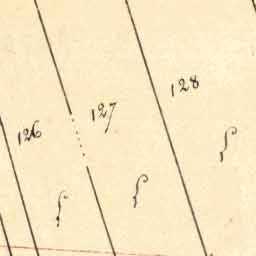 126
127
128
ʃ
ʃ
ʃ